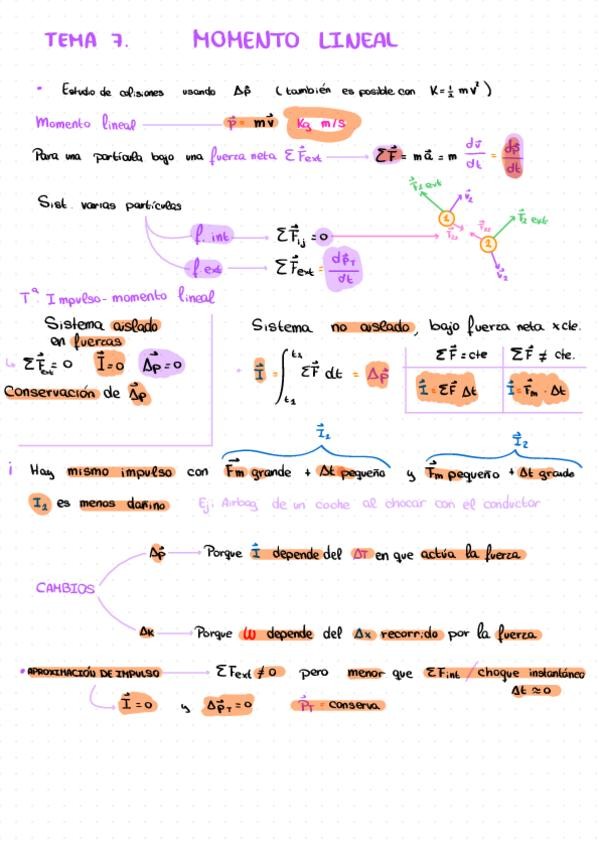 TEMA 7. MOMENTO LINEAL
Estudio de colisiones usando Δp⃗ (también es posible con K=½ mv²)
Momento lineal p⃗ = mv⃗ Kg m/s
Para una partícula bajo una fuerza neta ΣF⃗ext ΣF⃗ = ma⃗ = m dv⃗/dt = dp⃗/dt
Sist. varias partículas
f. int ΣF⃗ij = 0
f. ext ΣF⃗ext = dp⃗T/dt
1 2
Tª Impulso-momento lineal
Sistema aislado
en fuerzas
I⃗=0 Δp⃗=0
Conservación de Δp⃗
Sistema no aislado, bajo fuerza neta xcte.
I⃗ = ∫ ΣF⃗ dt = Δp⃗
ΣF⃗=cte ΣF⃗ ≠ cte.
I⃗=ΣF⃗ Δt I⃗=F⃗m · Δt
¡ Hay mismo impulso con F⃗m grande + Δt pequeño y F⃗m pequeño + Δt grande
es menos dañino Ej. Airbag de un coche al chocar con el conductor
CAMBIOS
Δp⃗ Porque I⃗ depende del ΔT en que actúa la fuerza
ΔK Porque W depende del Δx recorrido por la fuerza
APROXIMACIÓN DE IMPULSO ΣFext ≠ 0 pero menor que ΣFint / choque instantáneo
Δt ≈ 0
I⃗ = 0 y Δp⃗T = 0 p⃗T = conserva